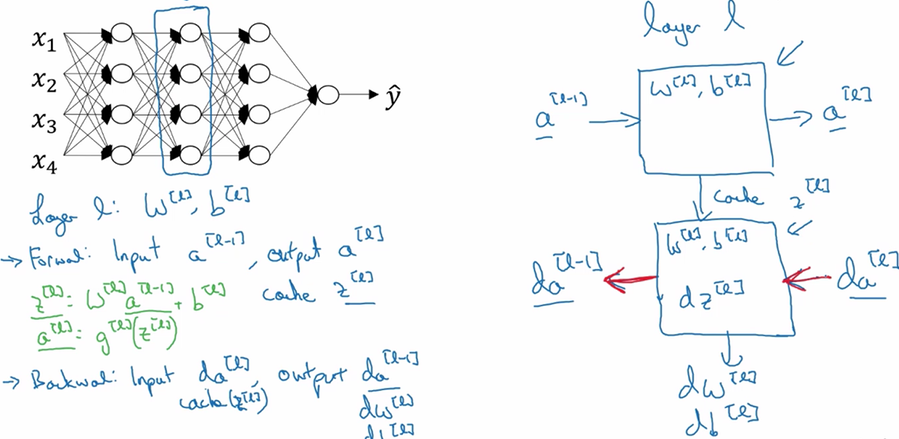 x₁
x₂
x₃
x₄
ŷ
Layer l: W^[l], b^[l]
→ Forward: Input a^[l-1], output a^[l]
z^[l] = W^[l] a^[l-1] + b^[l]
cache z^[l]
a^[l] = g^[l](z^[l])
→ Backward: Input da^[l], output da^[l-1]
cache(z^[l])
dW^[l]
db^[l]
layer l
W^[l], b^[l]
a^[l-1]
a^[l]
cache z^[l]
W^[l], b^[l]
da^[l-1]
da^[l]
dz^[l]
dW^[l]
db^[l]